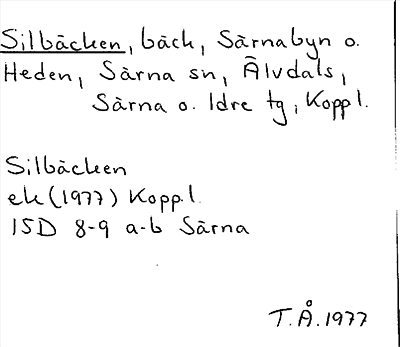 Silbäcken, bäck, Särnabyn o.
Heden, Särna sn, Älvdals,
Särna o. Idre tg, Koppl.
Silbäcken
ek (1977) Koppl.
15D 8-9 a-b Särna
T.Å. 1977